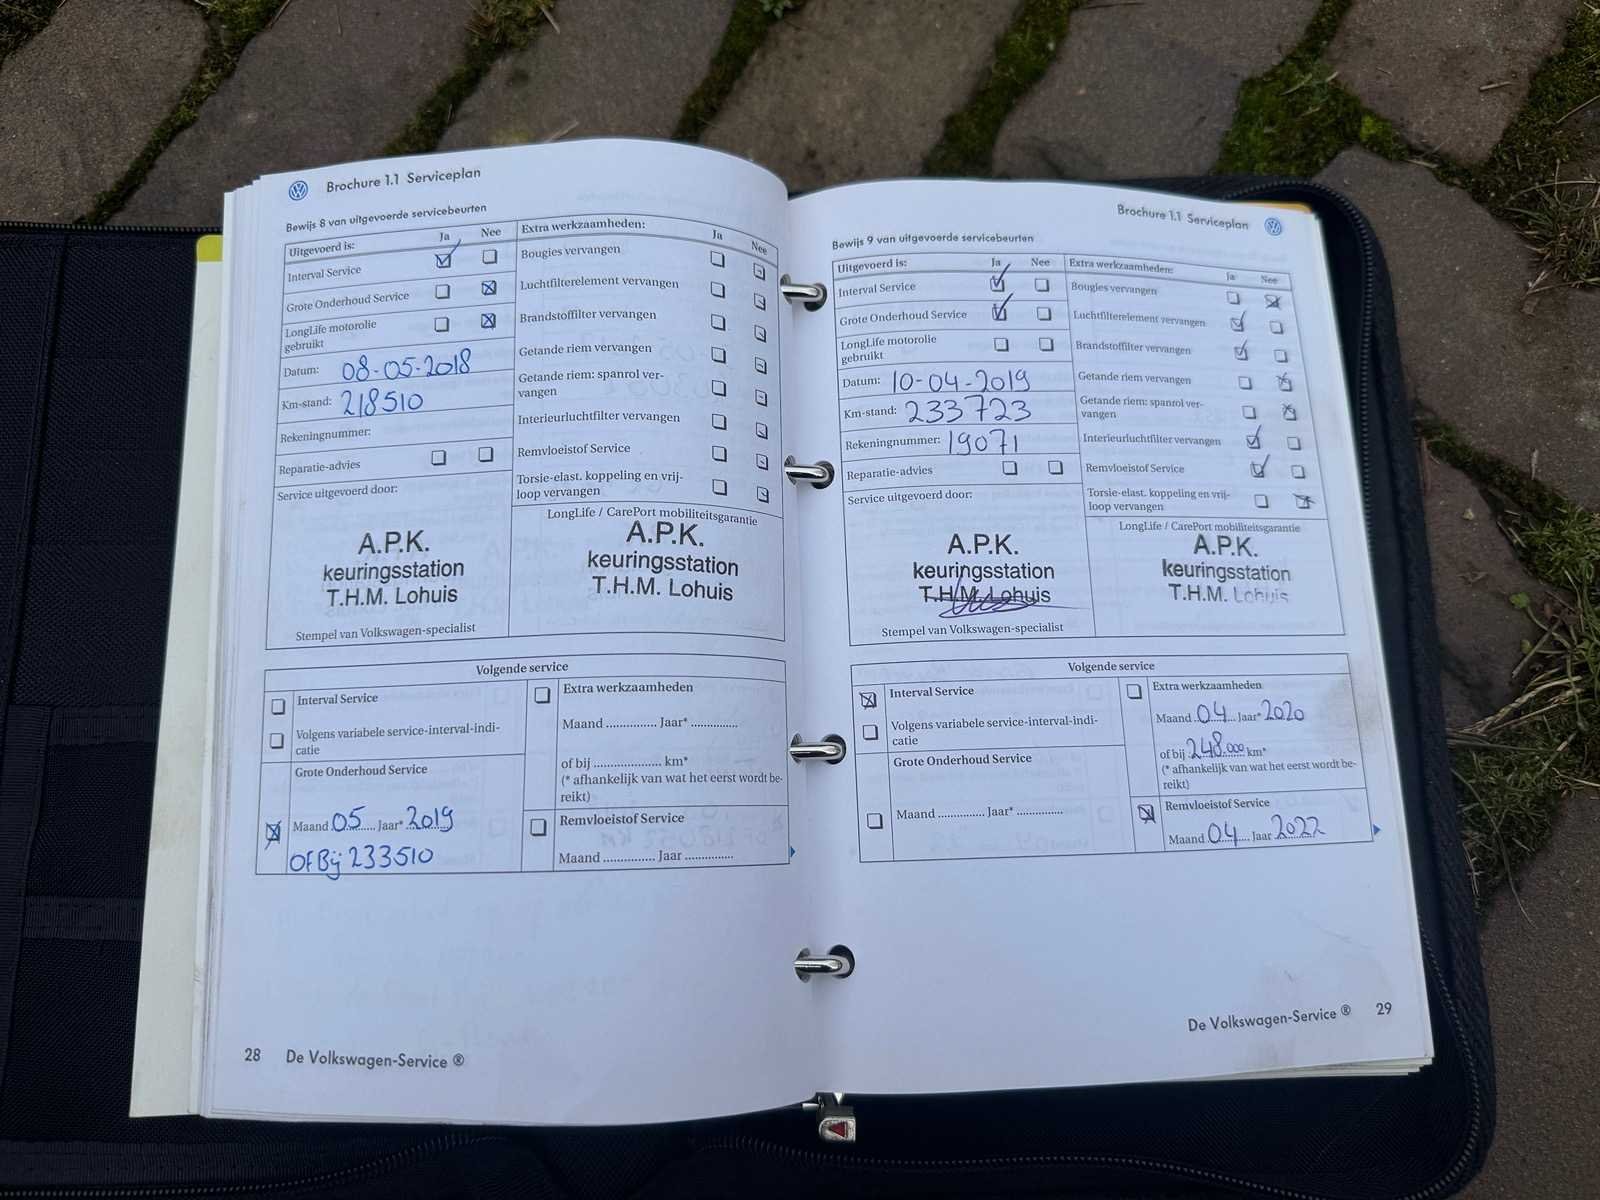 Brochure 1.1 Serviceplan
Bewijs 8 van uitgevoerde servicebeurten
Uitgevoerd is:
Ja
Nee
Interval Service
Grote Onderhoud Service
LongLife motorolie
gebruikt
Datum: 08-05-2018
Km-stand: 218510
Rekeningnummer:
Reparatie-advies
Service uitgevoerd door:
A.P.K.
keuringsstation
T.H.M. Lohuis
Stempel van Volkswagen-specialist
Extra werkzaamheden:
Ja
Nee
Bougies vervangen
Luchtfilterelement vervangen
Brandstoffilter vervangen
Getande riem vervangen
Getande riem: spanrol ver-
vangen
Interieurluchtfilter vervangen
Remvloeistof Service
Torsie-elast. koppeling en vrij-
loop vervangen
LongLife / CarePort mobiliteitsgarantie
A.P.K.
keuringsstation
T.H.M. Lohuis
Volgende service
Interval Service
Volgens variabele service-interval-indi-
catie
Grote Onderhoud Service
Maand 05 Jaar* 2019
OF Bij 233510
Extra werkzaamheden
Maand ............... Jaar* ..............
of bij .................... km*
(* afhankelijk van wat het eerst wordt be-
reikt)
Remvloeistof Service
Maand ............... Jaar ..............
28 De Volkswagen-Service ®
Brochure 1.1 Serviceplan
Bewijs 9 van uitgevoerde servicebeurten
Uitgevoerd is:
Ja
Nee
Interval Service
Grote Onderhoud Service
LongLife motorolie
gebruikt
Datum: 10-04-2019
Km-stand: 233723
Rekeningnummer: 19071
Reparatie-advies
Service uitgevoerd door:
A.P.K.
keuringsstation
T.H.M. Lohuis
Stempel van Volkswagen-specialist
Extra werkzaamheden:
Ja
Nee
Bougies vervangen
Luchtfilterelement vervangen
Brandstoffilter vervangen
Getande riem vervangen
Getande riem: spanrol ver-
vangen
Interieurluchtfilter vervangen
Remvloeistof Service
Torsie-elast. koppeling en vrij-
loop vervangen
LongLife / CarePort mobiliteitsgarantie
A.P.K.
keuringsstation
T.H.M. Lohuis
Volgende service
Interval Service
Volgens variabele service-interval-indi-
catie
Grote Onderhoud Service
Maand ............... Jaar* ..............
Extra werkzaamheden
Maand 04 Jaar* 2020
of bij 248.000 km*
(* afhankelijk van wat het eerst wordt be-
reikt)
Remvloeistof Service
Maand 04 Jaar 2022
De Volkswagen-Service ® 29